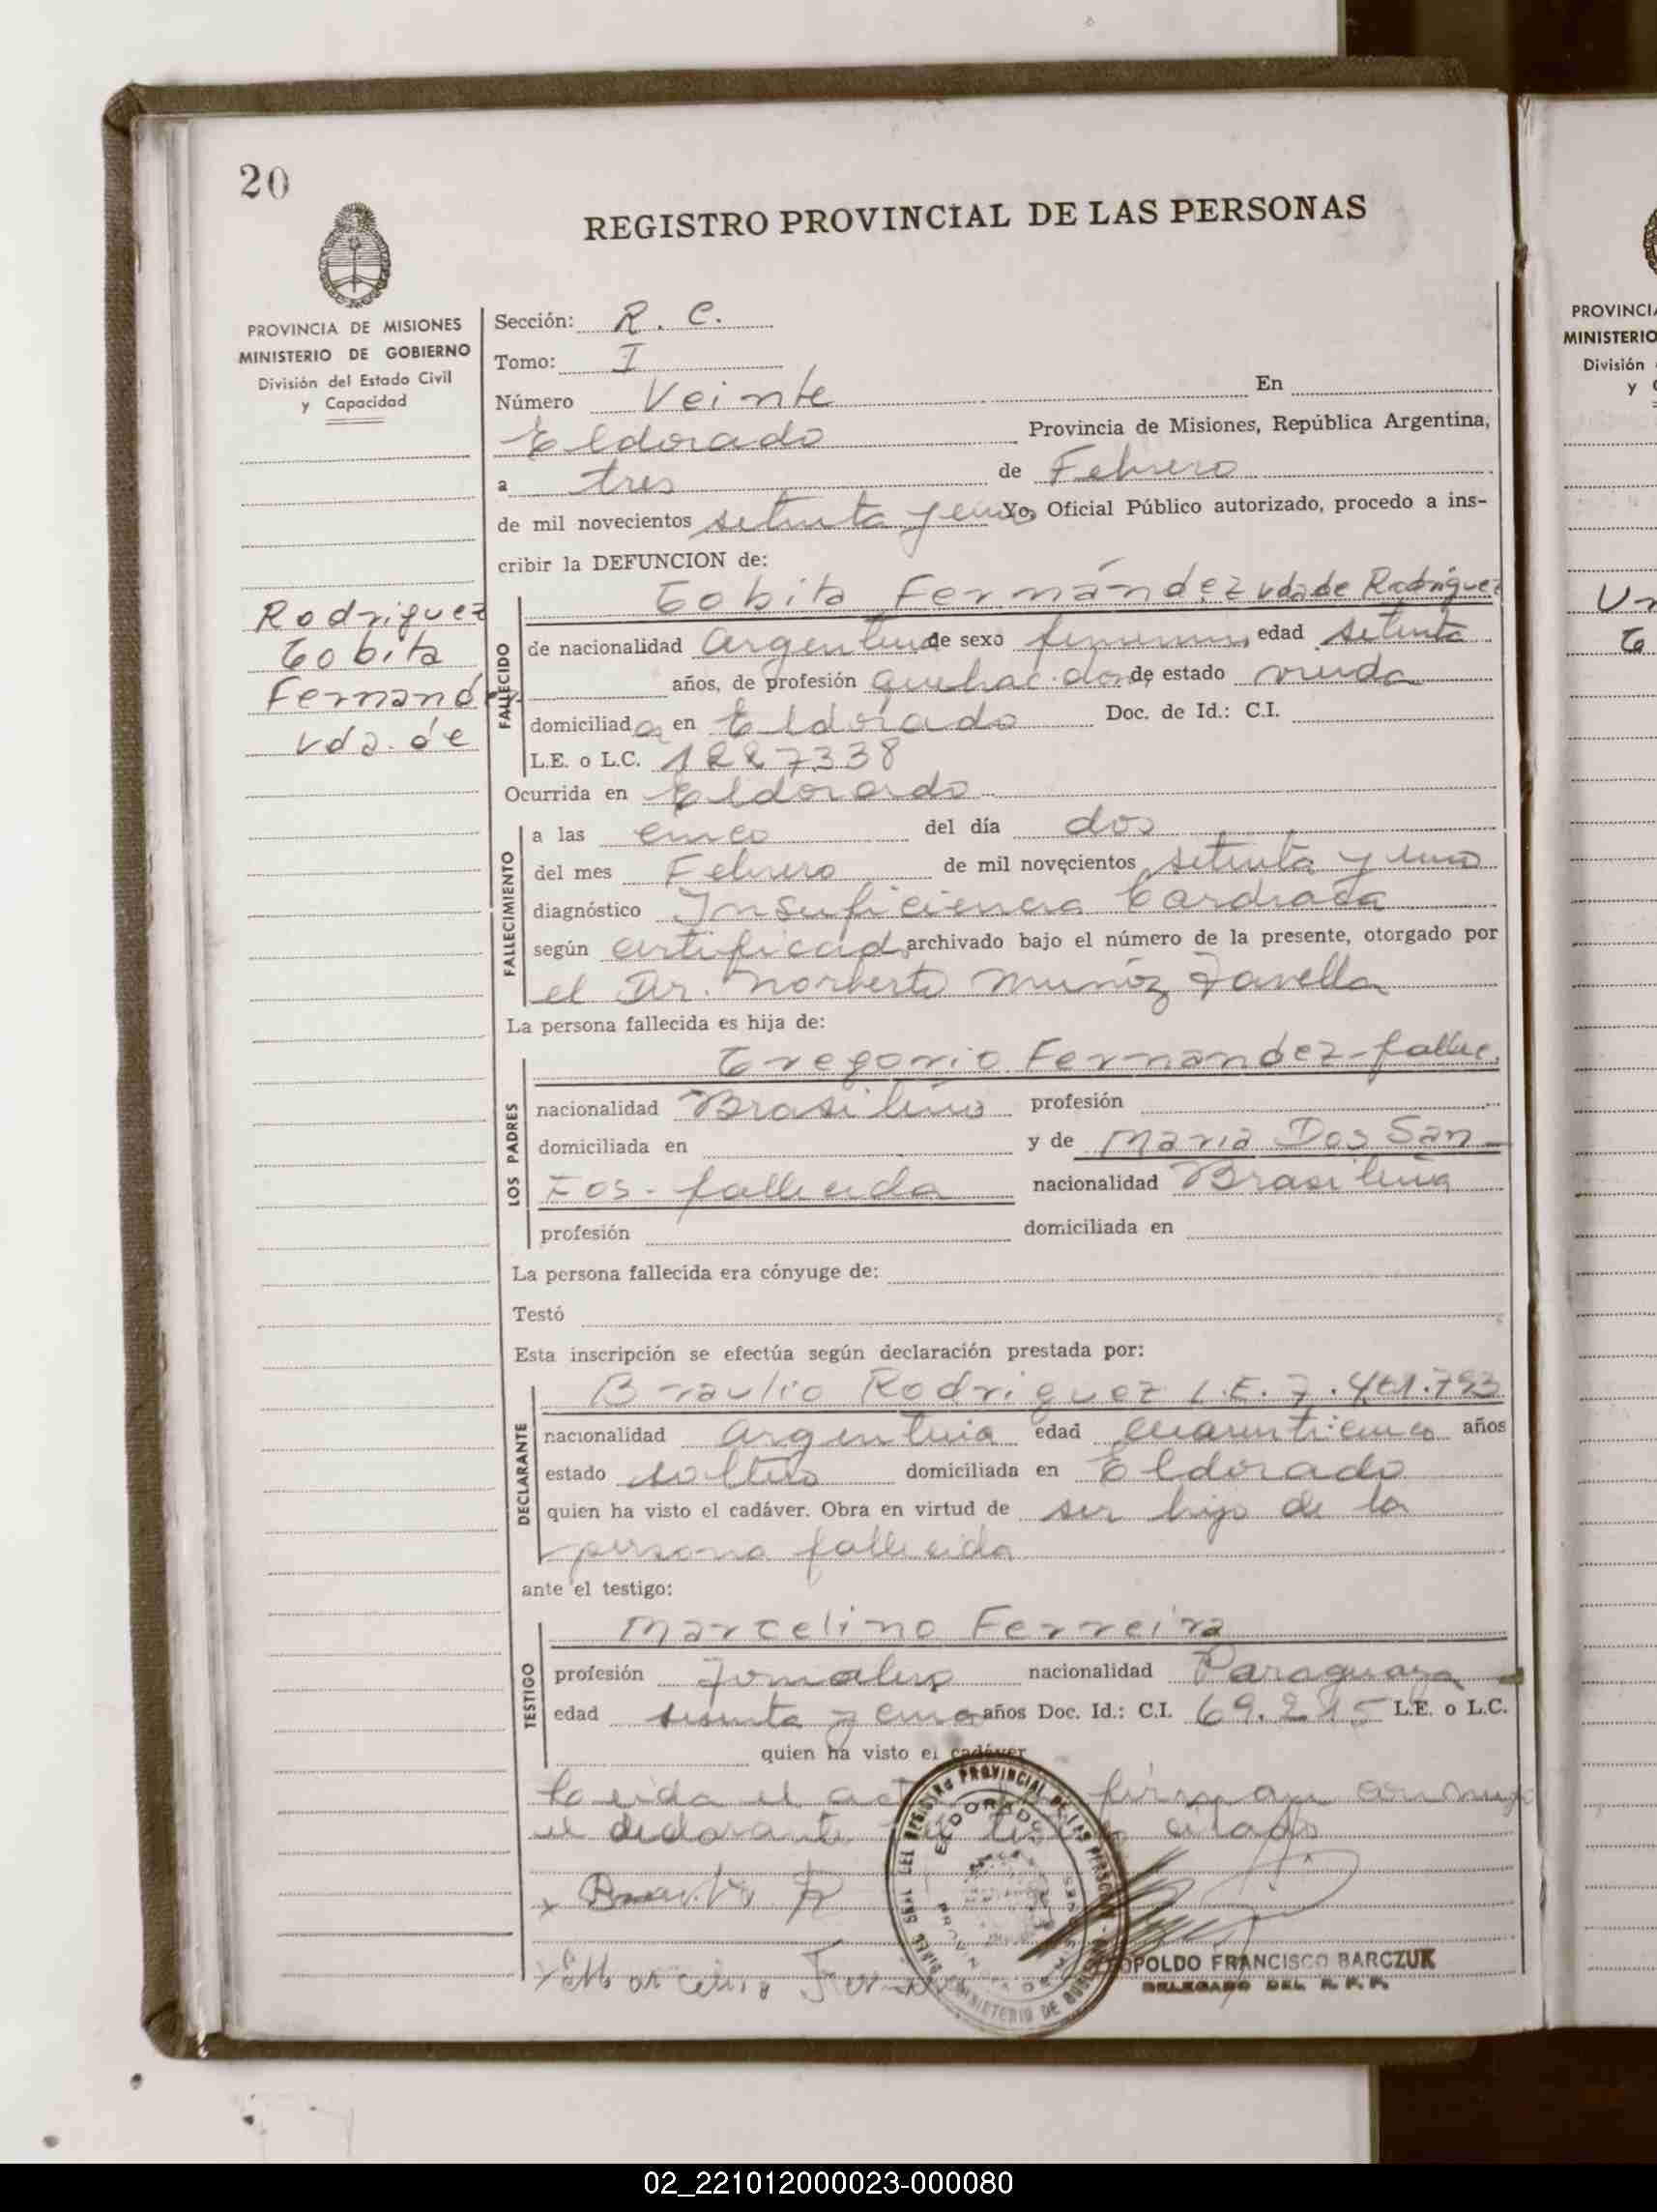 20
REGISTRO PROVINCIAL DE LAS PERSONAS
PROVINCIA DE MISIONES
MINISTERIO DE GOBIERNO
División del Estado Civil
y Capacidad
Rodriguez
Tobita
Fernandez
vda. de
Sección: R. C.
Tomo: I
Número Veinte En
Eldorado Provincia de Misiones, República Argentina,
a tres de Febrero
de mil novecientos setenta y uno Yo, Oficial Público autorizado, procedo a ins-
cribir la DEFUNCION de:
FALLECIDO
Tobita Fernández vda de Rodriguez
de nacionalidad argentina de sexo femenino, edad setenta
años, de profesión quehac. dom, de estado viuda
domiciliada en Eldorado Doc. de Id.: C.I.
L.E. o L.C. 1227338
Ocurrida en Eldorado
FALLECIMIENTO
a las cinco del día dos
del mes Febrero de mil novecientos setenta y uno
diagnóstico Insuficiencia Cardiaca
según certificado archivado bajo el número de la presente, otorgado por
el Dr. Norberto Muñoz
La persona fallecida es hija de:
LOS PADRES
Gregorio Fernandez - fallec.
nacionalidad Brasileño profesión
domiciliada en y de Maria Dos San
tos - fallecida nacionalidad Brasileña
profesión domiciliada en
La persona fallecida era cónyuge de:
Testó
Esta inscripción se efectúa según declaración prestada por:
DECLARANTE
Braulio Rodriguez L.E. 7.
nacionalidad argentina edad cuarenticinco años
estado soltero domiciliada en Eldorado
quien ha visto el cadáver. Obra en virtud de ser hijo de la
persona fallecida
ante el testigo:
TESTIGO
Marcelino Ferreira
profesión Jornalero nacionalidad Paraguaya
edad sesenta y cinco años Doc. Id.: C.I. 69.215 L.E. o L.C.
quien ha visto el cadáver
Leida el acta firman conmigo
el declarante y el testigo citado
ELDORADO
LEOPOLDO FRANCISCO BARCZUK
DELEGADO DEL R. P. P.
PROVINCIA
MINISTERIO
División
y
02_221012000023-000080